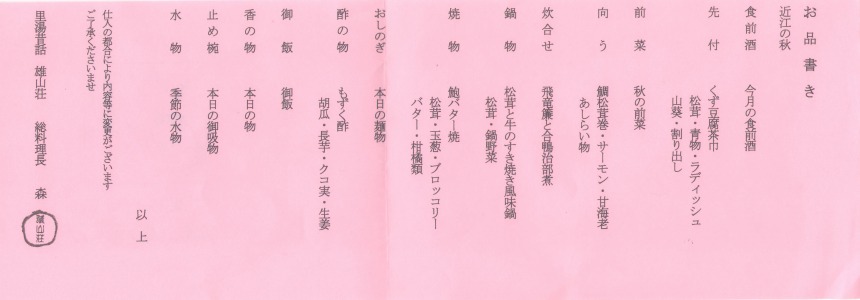 お品書き
近江の秋
食前酒 今月の食前酒
先付 くず豆腐茶巾
松茸・青物・ラディッシュ
山葵・割り出し
前菜 秋の前菜
向う 鯛松茸巻・サーモン・甘海老
あしらい物
炊合せ 飛竜頭と合鴨治部煮
鍋物 松茸と牛のすき焼き風味鍋
松茸・鍋野菜
焼物 鮑バター焼
松茸・玉葱・ブロッコリー
バター・柑橘類
おしのぎ 本日の麺物
酢の物 もずく酢
胡瓜・長芋・クコ実・生姜
御飯 御飯
香の物 本日の物
止め椀 本日の御吸物
水物 季節の水物
以上
仕入の都合により内容等に変更がございます
ご了承くださいませ
里湯昔話 雄山荘 総料理長 森